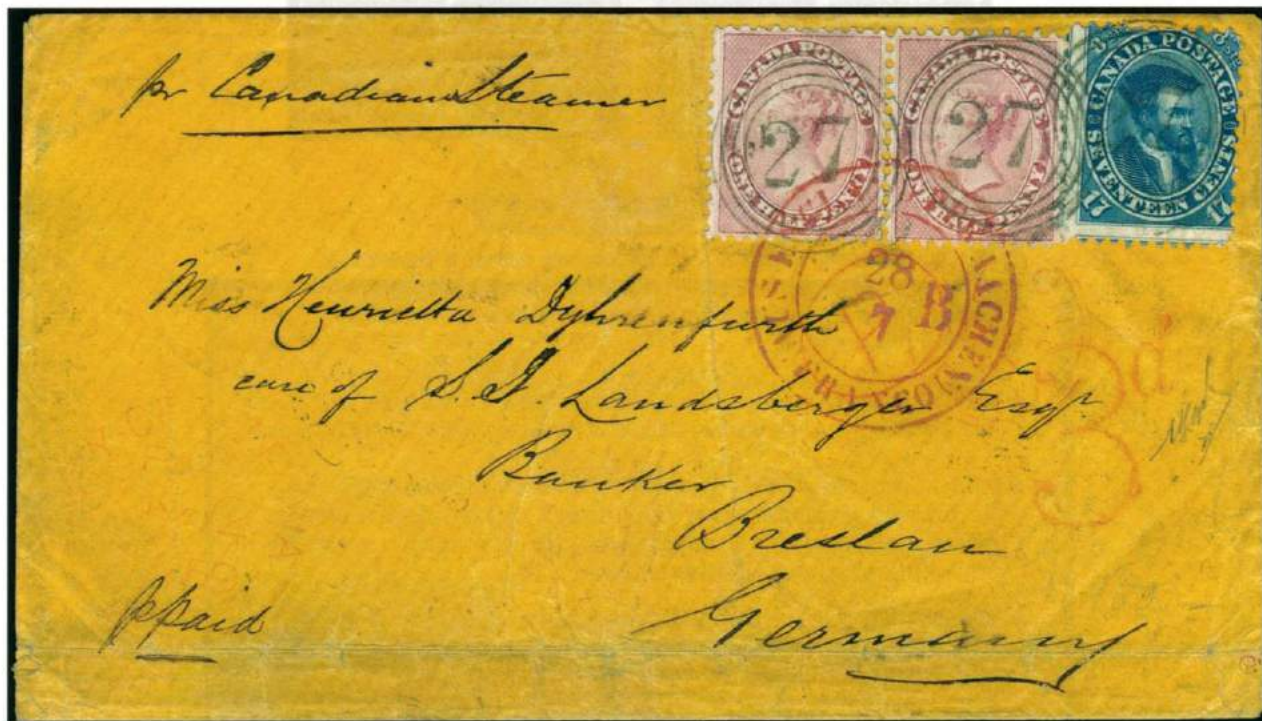 pr Canadian Steamer
CANADA POSTAGE
27
CANADA POSTAGE
27
CANADA POSTAGE
SEVENTEEN CENTS
17 17
28
7
B
AACHEN
Miss Henrietta Dyhrenfurth
care of S. J. Landsberger Esqr
Banker
Breslau
Germany
ppaid
3
d